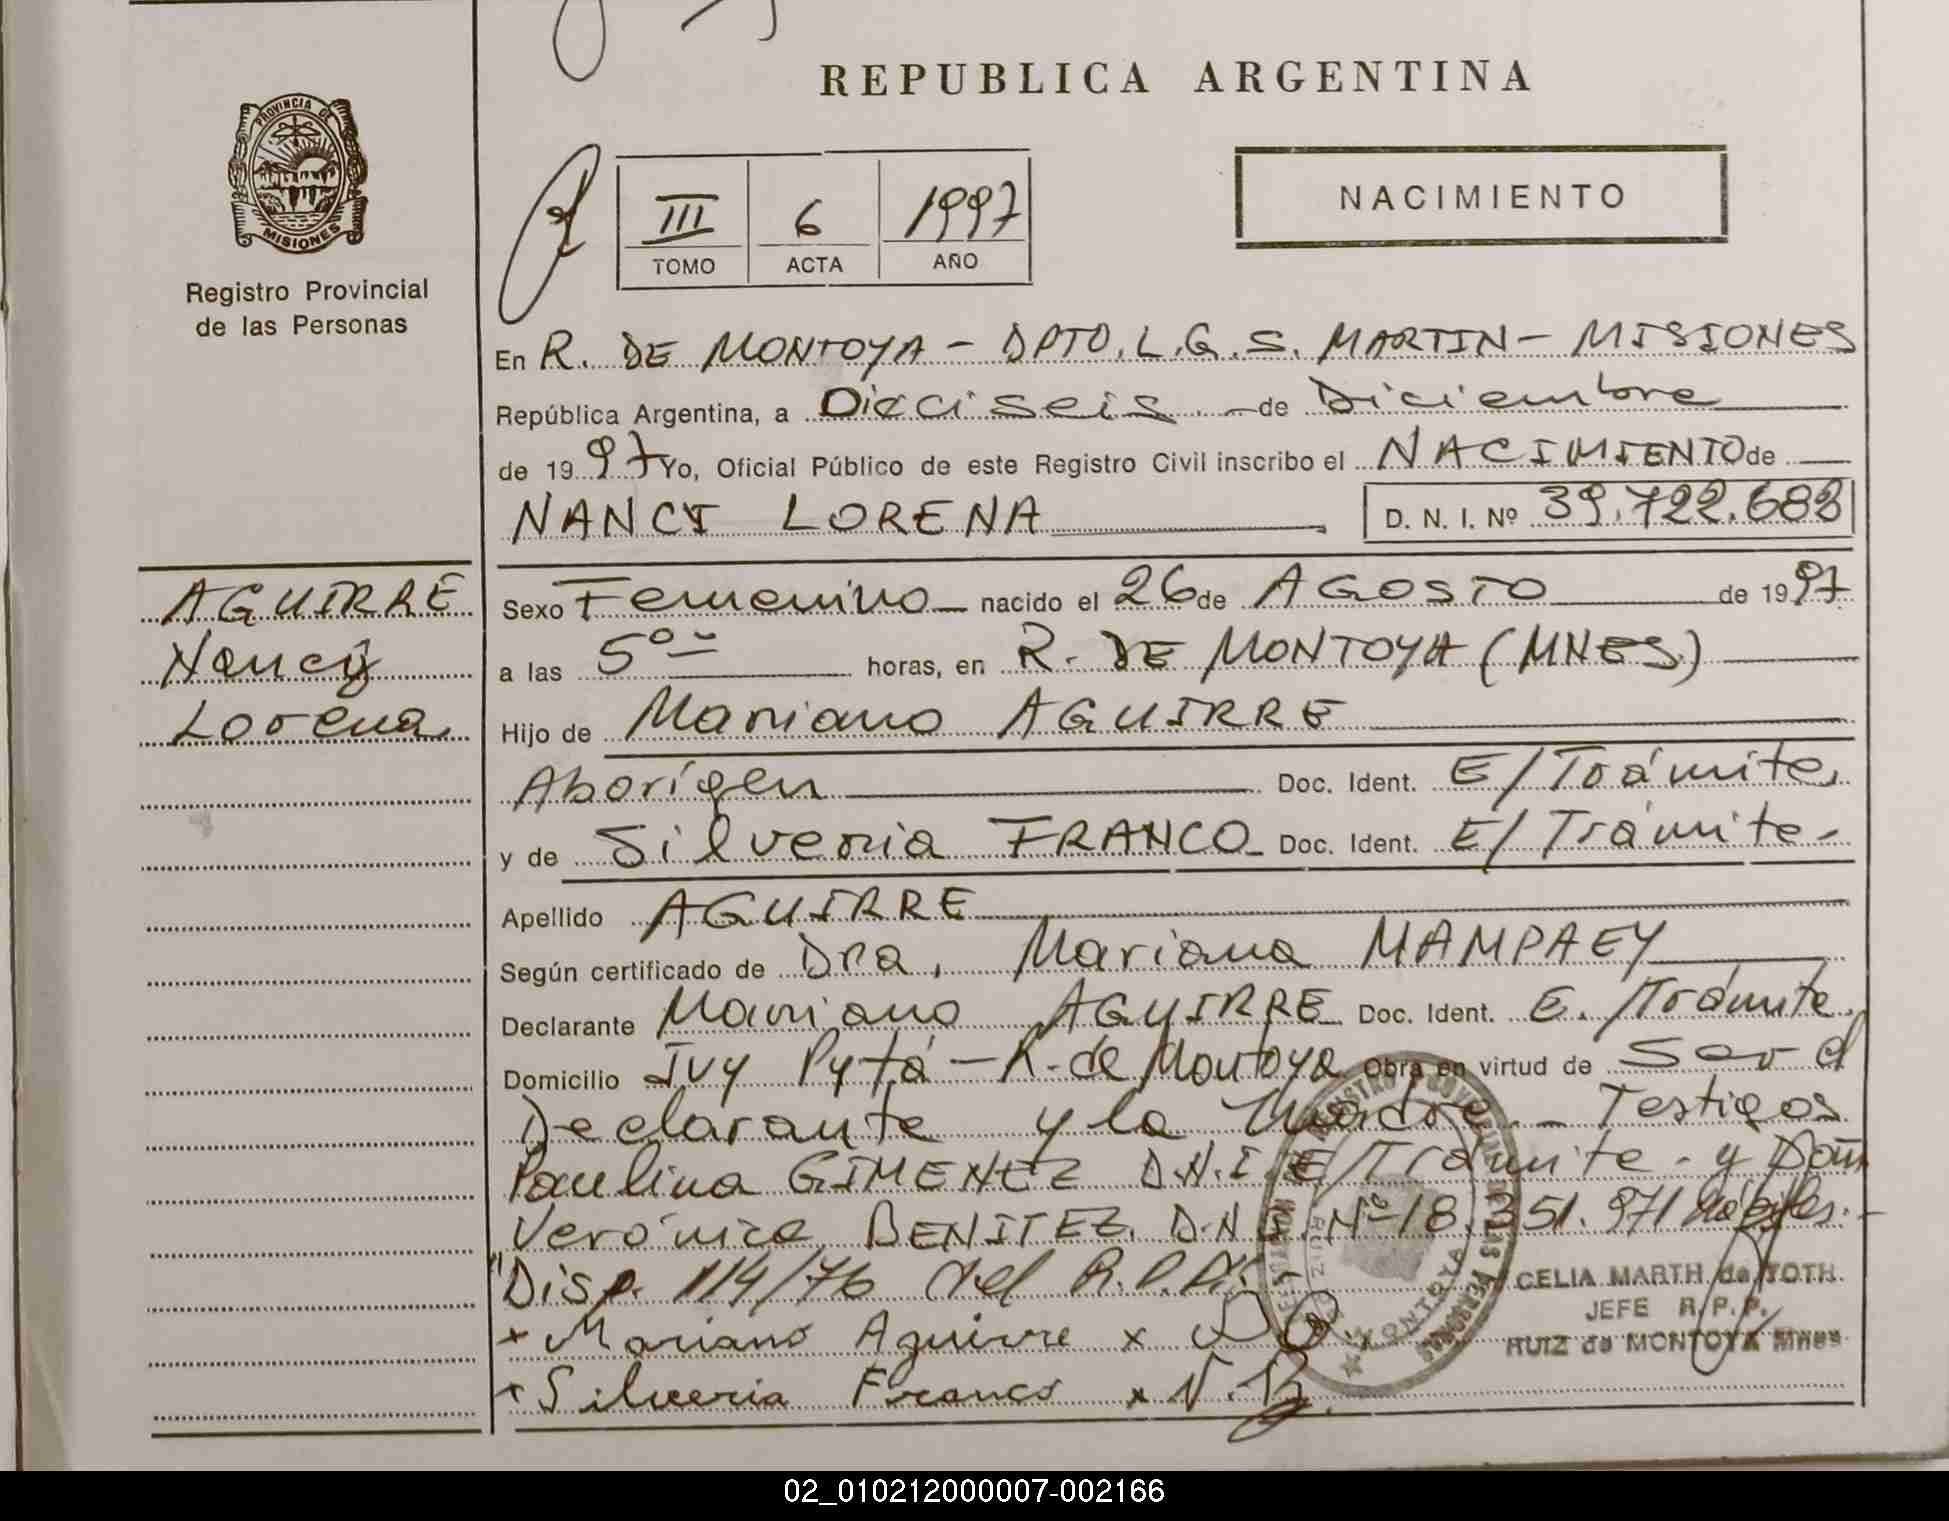 REPUBLICA ARGENTINA
PROVINCIA DE
MISIONES
Registro Provincial
de las Personas
III 6 1997
TOMO ACTA AÑO
NACIMIENTO
En R. DE MONTOYA - DPTO. L.G.S. MARTIN - MISIONES
República Argentina, a Dieciseis - de Diciembre
de 19 97 Yo, Oficial Público de este Registro Civil inscribo el NACIMIENTO de
NANCY LORENA D. N. I. Nº 39.722.682
AGUIRRE
Nancy
Lorena
Sexo Femenino nacido el 26 de AGOSTO de 19 97
a las 5°° horas, en R. DE MONTOYA (MNES.)
Hijo de Mariano AGUIRRE
Aborígen Doc. Ident. E/Trámite.
y de Silveria FRANCO Doc. Ident. E/Trámite-
Apellido AGUIRRE
Según certificado de Dra. Mariana MAMPAEY
Declarante Mariano AGUIRRE Doc. Ident. E./Trámite.
Domicilio Ivy Pytá - R. de Montoya Obra en virtud de Ser el
Declarante y la Madre - Testigos
Paulina GIMENEZ D.N.I. E/Trámite - y Doña
Verónica BENITEZ D.N.I. Nº 18.351.971 hábiles.-
"Disp. 114/76 del R.P.P.
x Mariano Aguirre x
x Silveria Franco x V.B.
CELIA MARTH. de TOTH.
JEFE R.P.P.
RUIZ de MONTOYA Mnes
02_010212000007-002166